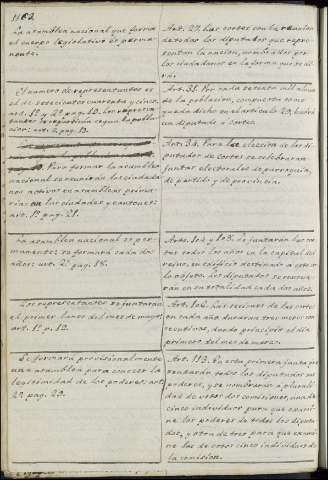 La asamblea nacional que forma
el cuerpo legislativo es perma-
nente.
Art. 27. Las cortes son la reunion
de todos los diputados que repre-
sentan la nacion, nombrados por
los ciudadanos en la forma que se di-
rá.
El numero de representantes es
el de setecientos cuarenta y cinco,
art. 1º pag. 12. los repre
segun la pobla-
cion: art. 2. pag. 13.
Art. 31. Por cada setenta mil almas
de la poblacion, compuesta como
queda dicho en el articulo 29, habrá
un diputado á cortes.
Para formar la asamblea
nacional se reunirán los ciudada-
nos activos en asambleas prima-
rias en las ciudades y cantones:
art. 1º pag. 21.
Art. 34. Para la eleccion de los di-
putados de cortes se celebrarán
juntas electorales de parroquia,
de partido y de provincia.
La asamblea nacional es per-
manente: se formará cada dos
años: art. 2º pag. 18.
Arts. 104 y 108. Se juntarán las cor-
tes todos los años en la capital del
reino, en edificio destinado á este so-
lo objeto. Los diputados se renova-
rán en su totalidad cada dos años.
Los representantes se juntarán
el primer lunes del mes de mayo,
art. 1º p. 12.
Art. 106. Las sesiones de las cortes
en cada año durarán tres meses con-
secutivos, dando principio el dia
primero del mes de marzo.
Se formará provisionalmente
una asamblea para conocer la
legitimidad de los poderes: art.
2º pag. 29.
Art. 113. En esta primera junta pre-
sentarán todos los diputados sus
poderes, y se nombrarán á plurali-
dad de votos dos comisiones, una de
cinco individuos para que exami-
ne los poderes de todos los diputa-
dos, y otra de tres para que exami-
ne los de estos cinco individuos de
la comision.